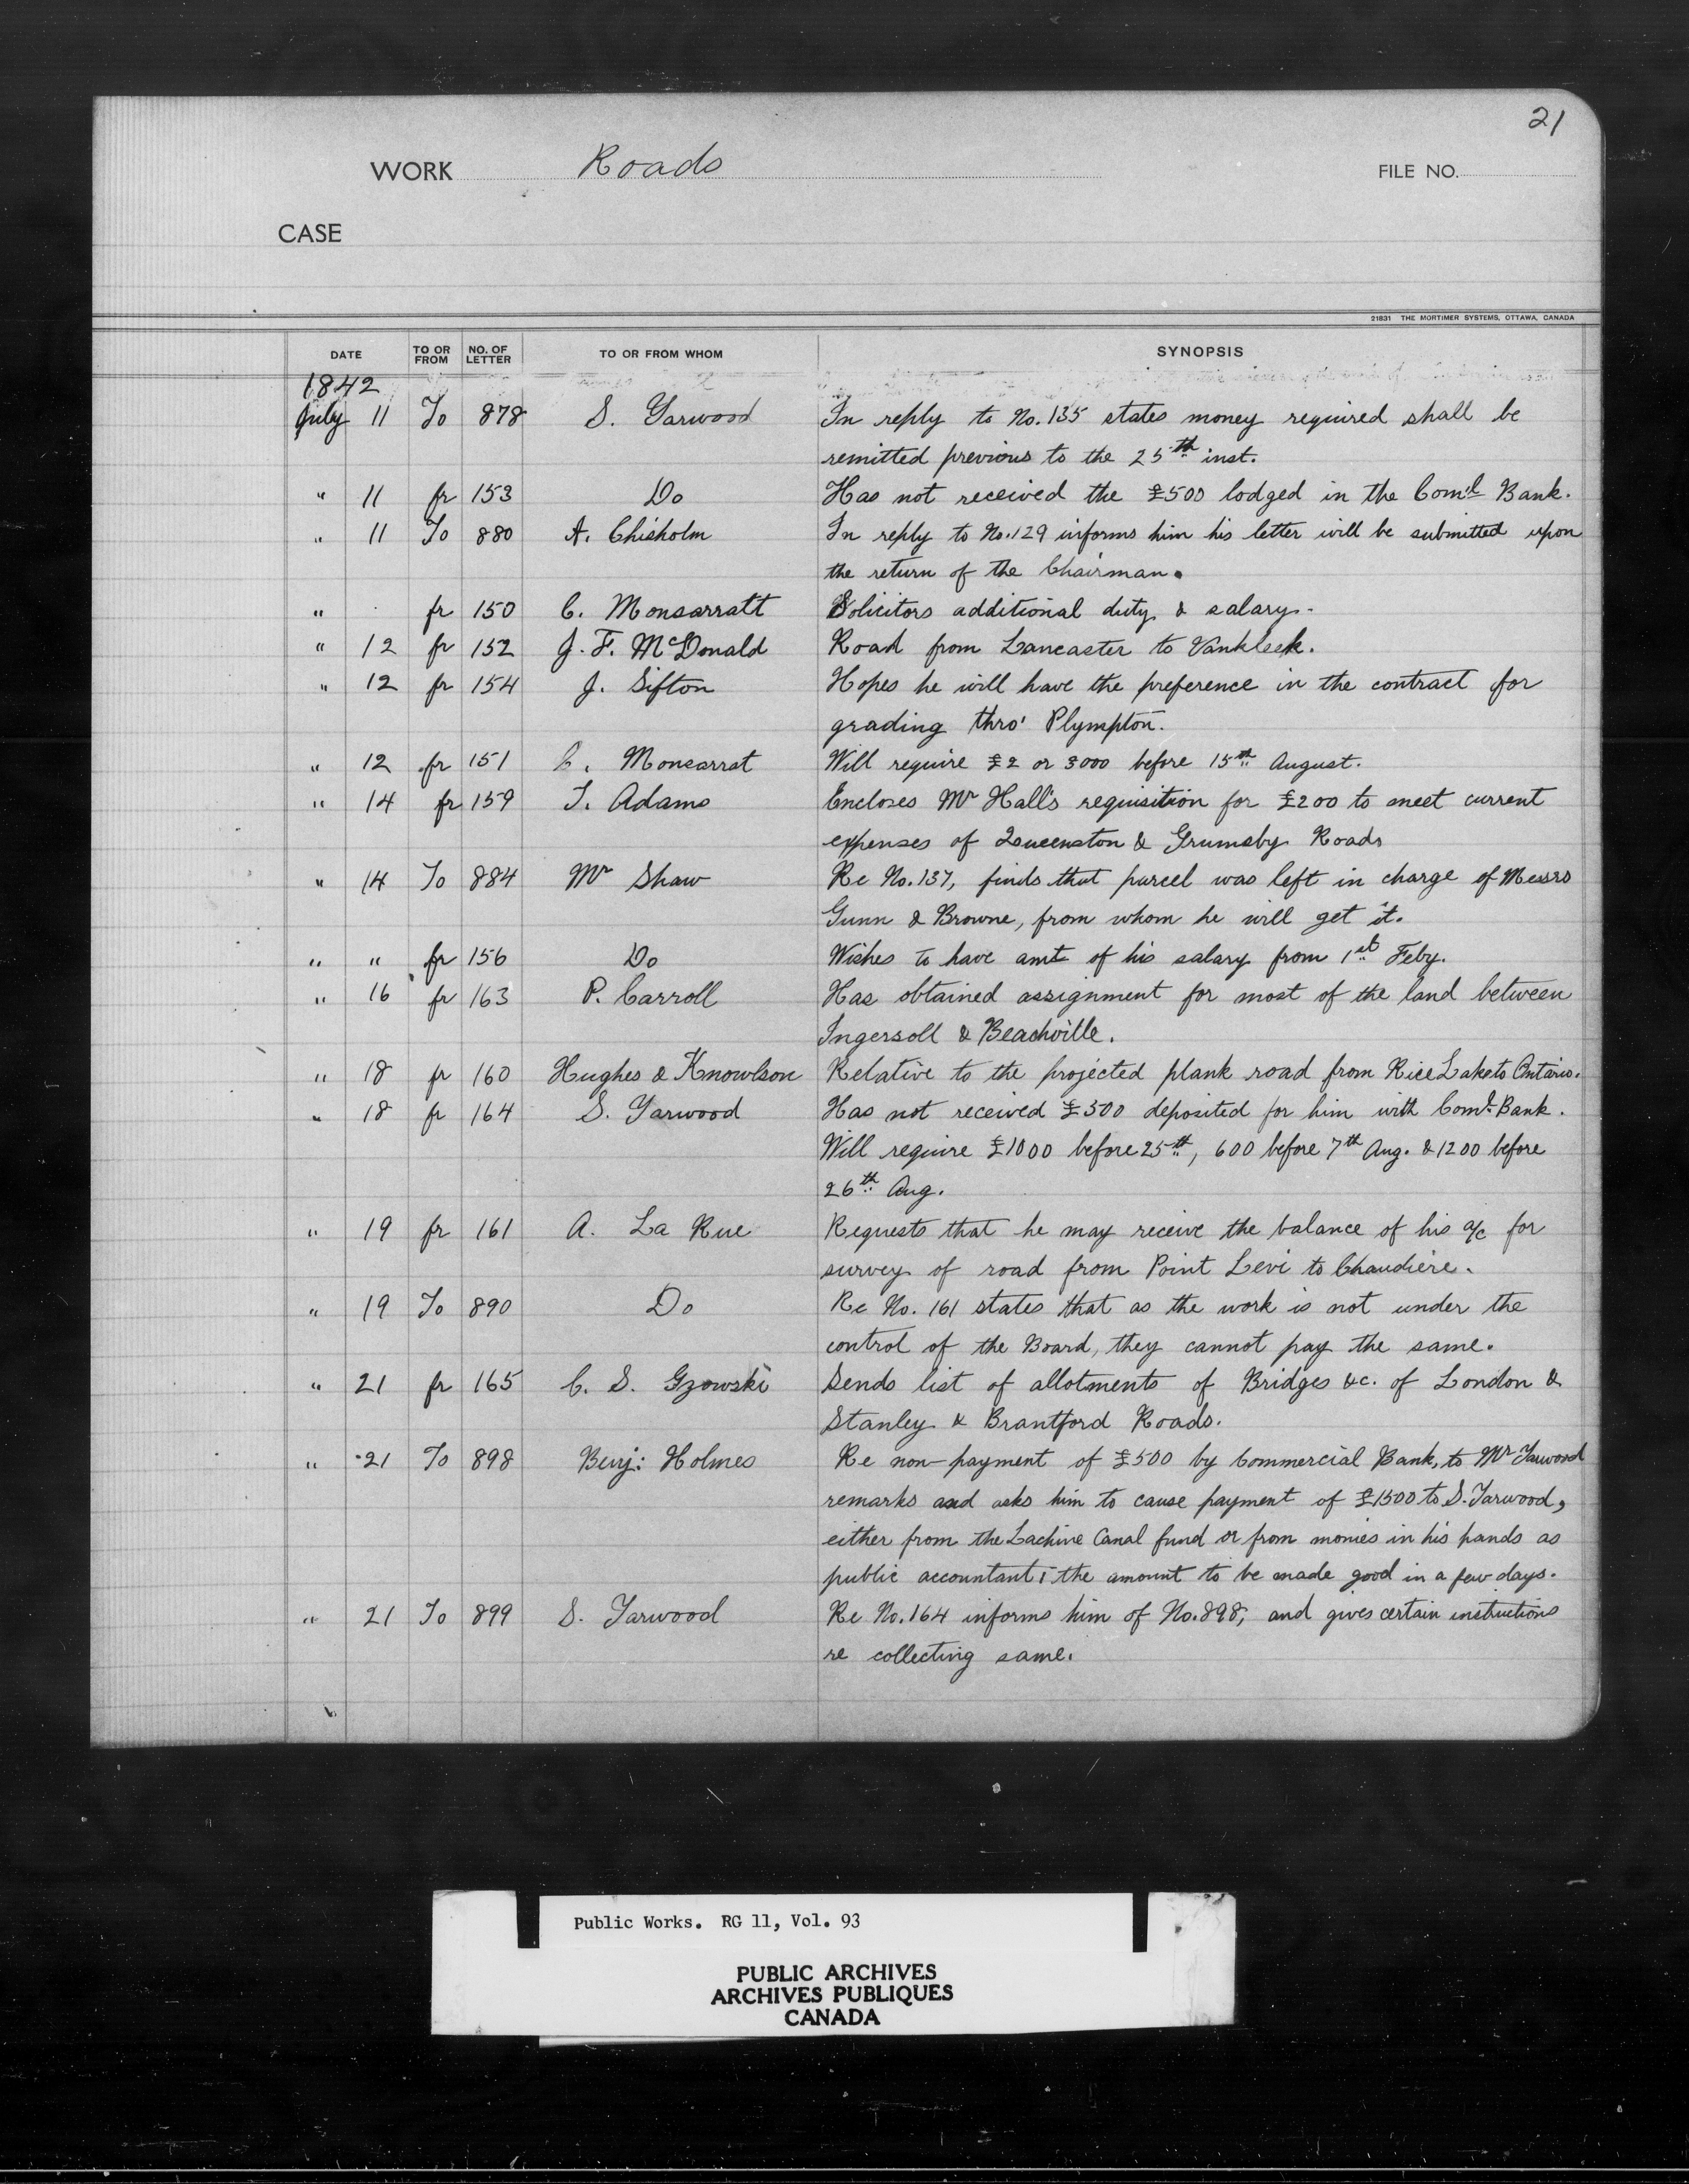 21
WORK Roads FILE NO.
CASE
21831 THE MORTIMER SYSTEMS, OTTAWA, CANADA
DATE TO OR FROM NO. OF LETTER TO OR FROM WHOM SYNOPSIS
1842
July 11 To 878 S. Yarwood In reply to No. 135 states money required shall be
remitted previous to the 25th inst.
" 11 fr 153 Do Has not received the £500 lodged in the Com'l Bank.
" 11 To 880 A. Chisholm In reply to No. 129 informs him his letter will be submitted upon
the return of the Chairman.
" fr 150 C. Monsarratt Solicitors additional duty & salary.
" 12 fr 152 J. F. McDonald Road from Lancaster to Vankleek.
" 12 fr 154 J. Sifton Hopes he will have the preference in the contract for
grading thro' Plympton.
" 12 fr 151 C. Monsarrat Will require £2 or 3000 before 15th August.
" 14 fr 159 T. Adams Encloses Mr Hall's requisition for £200 to meet current
expenses of Queenston & Grumsby Roads
" 14 To 884 Mr Shaw Re No. 137, finds that parcel was left in charge of Messrs
Gunn & Browne, from whom he will get it.
" " fr 156 Do Wishes to have amt of his salary from 1st Feby.
" 16 fr 163 P. Carroll Has obtained assignment for most of the land between
Ingersoll & Beachville.
" 18 fr 160 Hughes & Knowlson Relative to the projected plank road from Rice Lake to Ontario.
" 18 fr 164 S. Yarwood Has not received £500 deposited for him with Coml. Bank.
Will require £1000 before 25th, 600 before 7th Aug. & 1200 before
26th Aug.
" 19 fr 161 A. La Rue Requests that he may receive the balance of his a/c for
survey of road from Point Levi to Chaudiere.
" 19 To 890 Do Re No. 161 states that as the work is not under the
control of the Board, they cannot pay the same.
" 21 fr 165 C. S. Gzowski Sends list of allotments of Bridges &c. of London &
Stanley & Brantford Roads.
" 21 To 898 Benj: Holmes Re non-payment of £500 by Commercial Bank, to Mr Yarwood
remarks and asks him to cause payment of £1500 to S. Yarwood,
either from the Lachine Canal fund or from monies in his hands as
public accountant; the amount to be made good in a few days.
" 21 To 899 S. Yarwood Re No. 164 informs him of No. 898, and gives certain instructions
re collecting same.
Public Works. RG 11, Vol. 93
PUBLIC ARCHIVES
ARCHIVES PUBLIQUES
CANADA